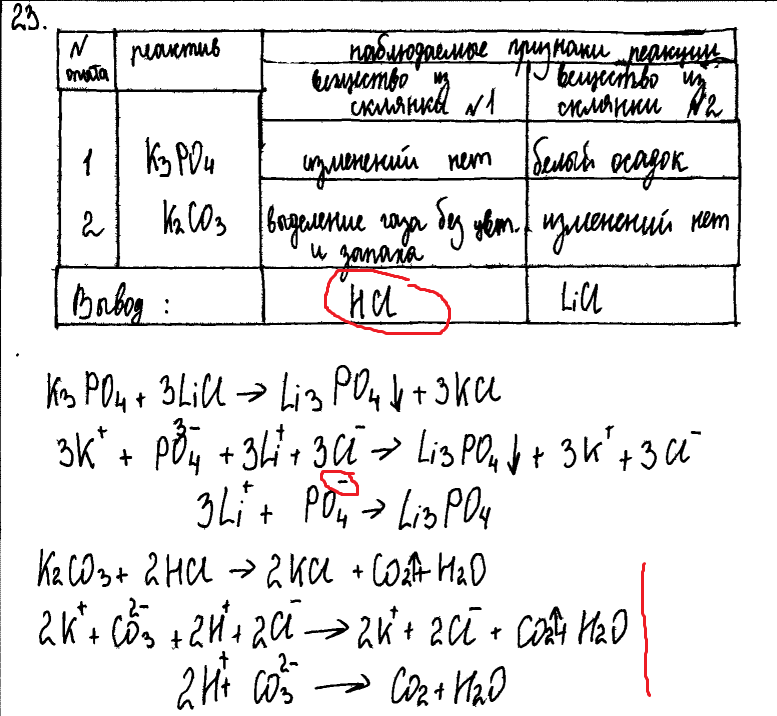 23.
N опыта | реактив | наблюдаемые признаки реакции
вещество из склянки №1 | вещество из склянки №2
1 | K3PO4 | изменений нет | белый осадок
2 | K2CO3 | выделение газа без цвт. и запаха | изменений нет
Вывод : | HCl | LiCl
K3PO4 + 3LiCl → Li3PO4↓ + 3KCl
3K⁺ + PO4³⁻ + 3Li⁺ + 3Cl⁻ → Li3PO4↓ + 3K⁺ + 3Cl⁻
3Li⁺ + PO4⁻ → Li3PO4
K2CO3 + 2HCl → 2KCl + CO2↑ + H2O
2K⁺ + CO3²⁻ + 2H⁺ + 2Cl⁻ → 2K⁺ + 2Cl⁻ + CO2↑ + H2O
2H⁺ + CO3²⁻ → CO2 + H2O